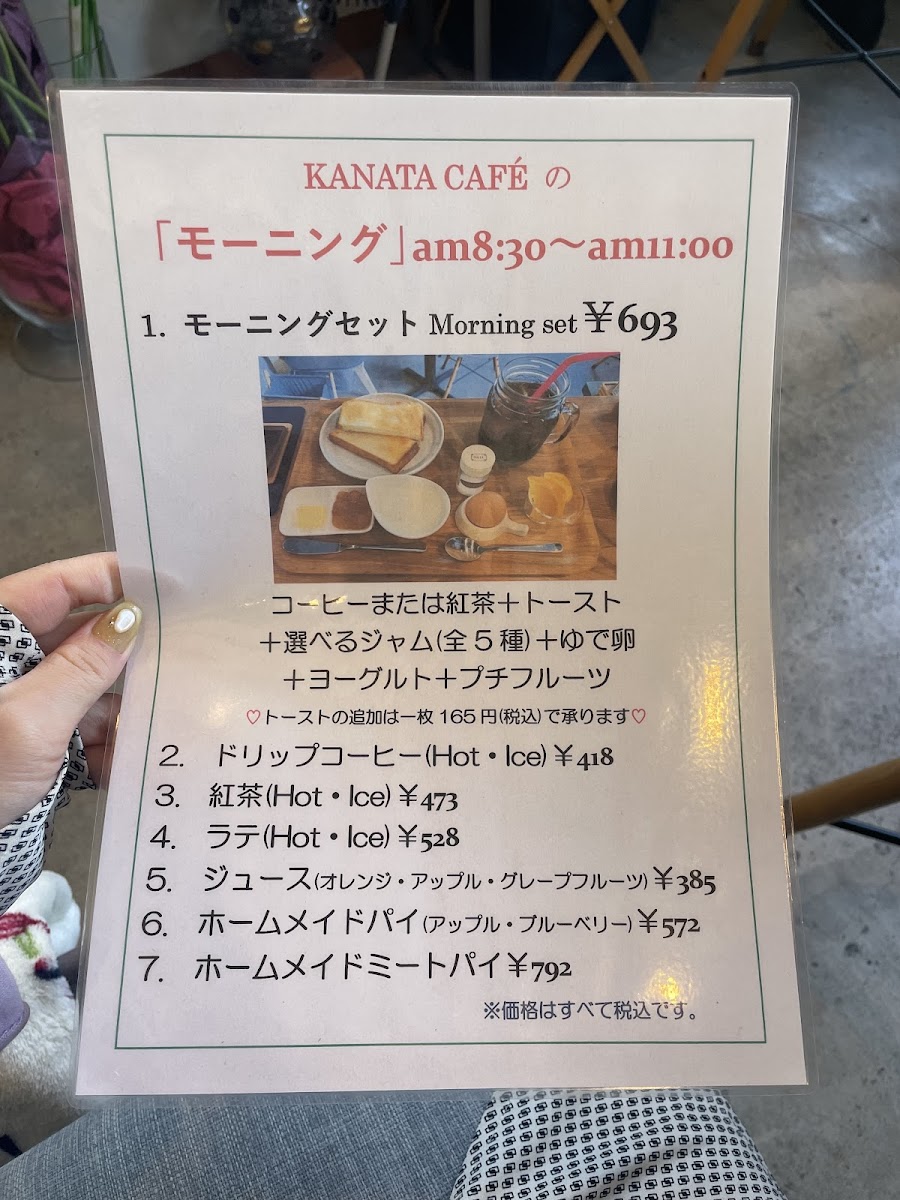 KANATA CAFÉ の
「モーニング」am8:30～am11:00
1. モーニングセット Morning set ￥693
コーヒーまたは紅茶＋トースト
＋選べるジャム(全５種)＋ゆで卵
＋ヨーグルト＋プチフルーツ
♡トーストの追加は一枚 165 円(税込)で承ります♡
2. ドリップコーヒー(Hot・Ice)￥418
3. 紅茶(Hot・Ice)￥473
4. ラテ(Hot・Ice)￥528
5. ジュース(オレンジ・アップル・グレープフルーツ)￥385
6. ホームメイドパイ(アップル・ブルーベリー)￥572
7. ホームメイドミートパイ￥792
※価格はすべて税込です。